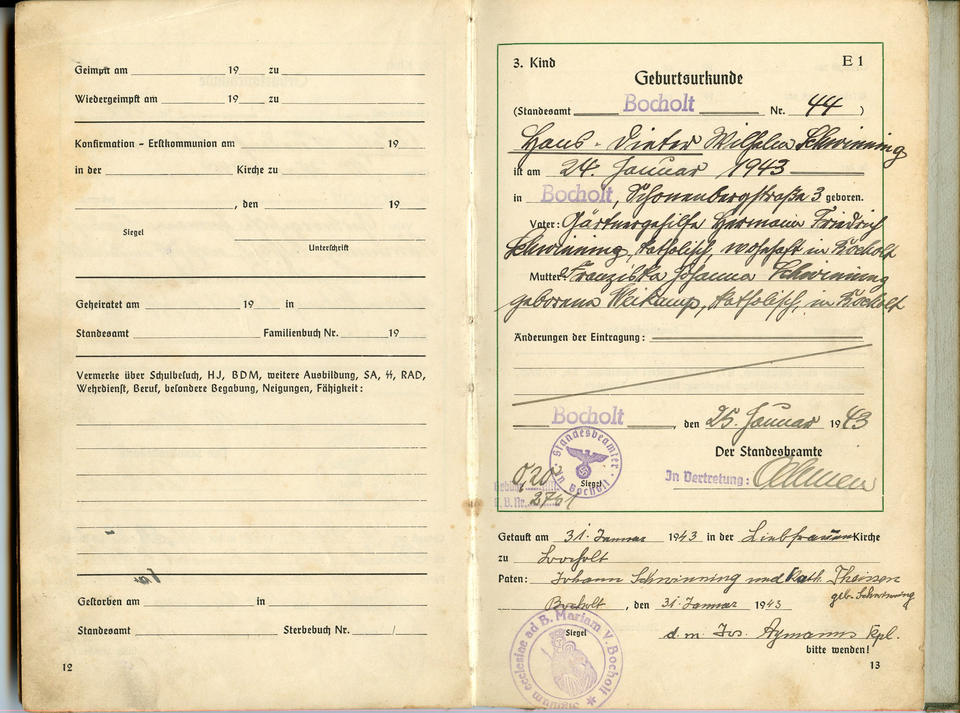 Geimpft am 19 zu
Wiedergeimpft am 19 zu
Konfirmation - Erstkommunion am 19
in der Kirche zu
, den 19
Siegel
Unterschrift
Geheiratet am 19 in
Standesamt Familienbuch Nr. 19
Vermerke über Schulbesuch, HJ, BDM, weitere Ausbildung, SA, ᛋᛋ, RAD,
Wehrdienst, Beruf, besondere Begabung, Neigungen, Fähigkeit:
Gestorben am in
Standesamt Sterbebuch Nr. /
12
3. Kind E 1
Geburtsurkunde
(Standesamt Bocholt Nr. 44 )
Hans-Dieter Wilhelm Schwinning
ist am 24. Januar 1943
in Bocholt, Schonenbergstraße 3 geboren.
Vater: Gärtnergehilfe Hermann Friedrich
Schwinning, katholisch, wohnhaft in Bocholt
Mutter: Franziska Johanna Schwinning
geborene Weikamp, katholisch, in Bocholt
Änderungen der Eintragung:
Bocholt, den 25. Januar 1943
Standesbeamter in Bocholt
Der Standesbeamte
In Vertretung:
0,20
Siegel
2761
Getauft am 31. Januar 1943 in der Liebfrauen Kirche
zu Bocholt
Paten: Johann Schwinning und Kath. Theissen
geb. Schwinning
Bocholt, den 31. Januar 1943
ecclesiae ad B. Mariam V. Bocholt
Siegel
d. m. Jos. Aymanns Kpl.
bitte wenden!
13